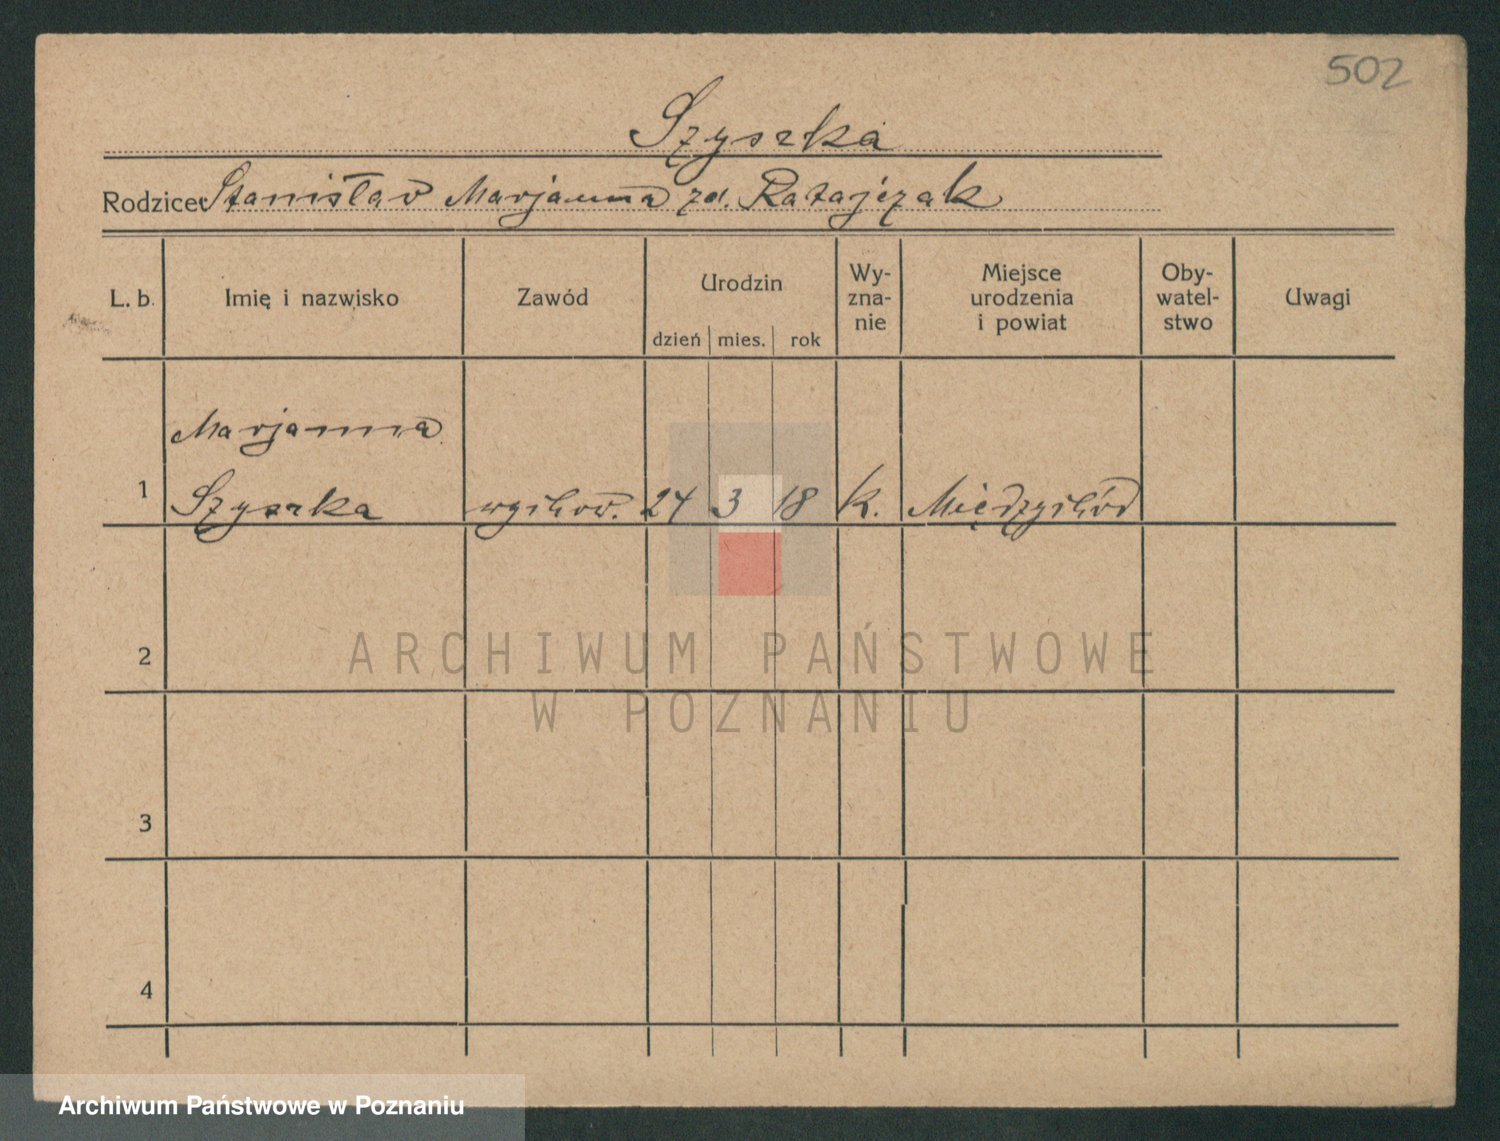 502
Szyszka
Rodzice: Stanisław Marjanna zd. Ratajczak
L. b. Imię i nazwisko Zawód Urodzin dzień mies. rok Wy-zna-nie Miejsce urodzenia i powiat Oby-watel-stwo Uwagi
Marjanna
1 Szyszka wychow. 24 3 18 k. Międzychód
2
ARCHIWUM PAŃSTWOWE
W POZNANIU
3
4
Archiwum Państwowe w Poznaniu